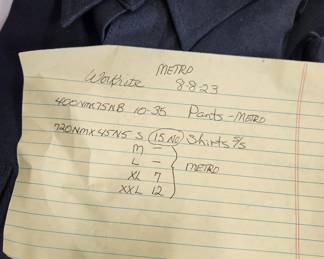 METRO
Workrite 8-8-23
400NMX75NB 10-35 Pants-METRO
720NMX45NS S (15 NC) Shirts S/s
M —
L — METRO
XL 7
XXL 12